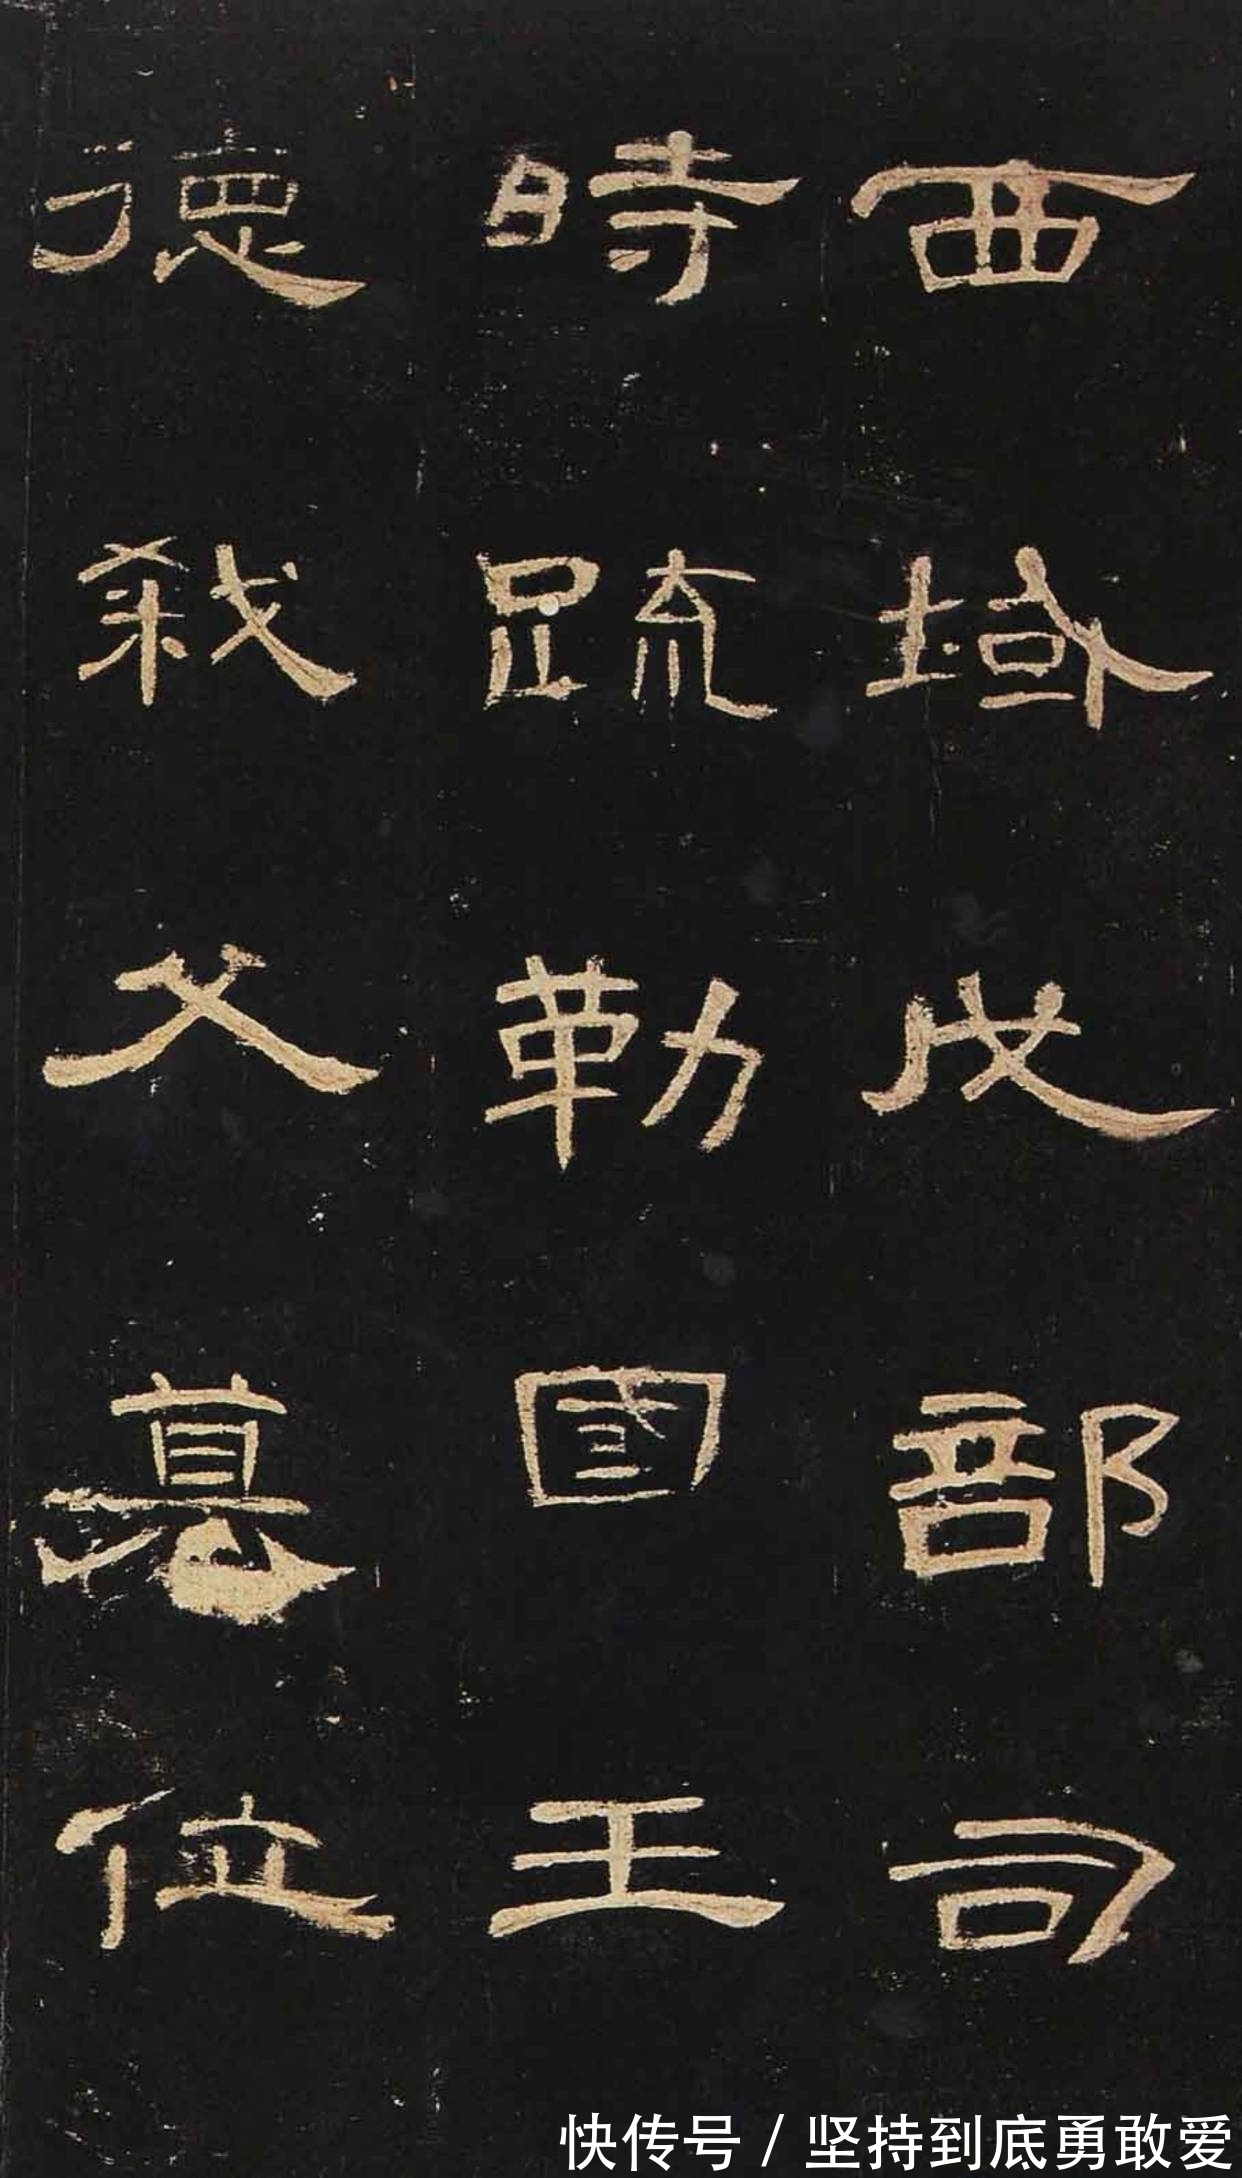 西域戊部司
時疏勒國王
德弑父篡位
快传号 / 坚持到底勇敢爱